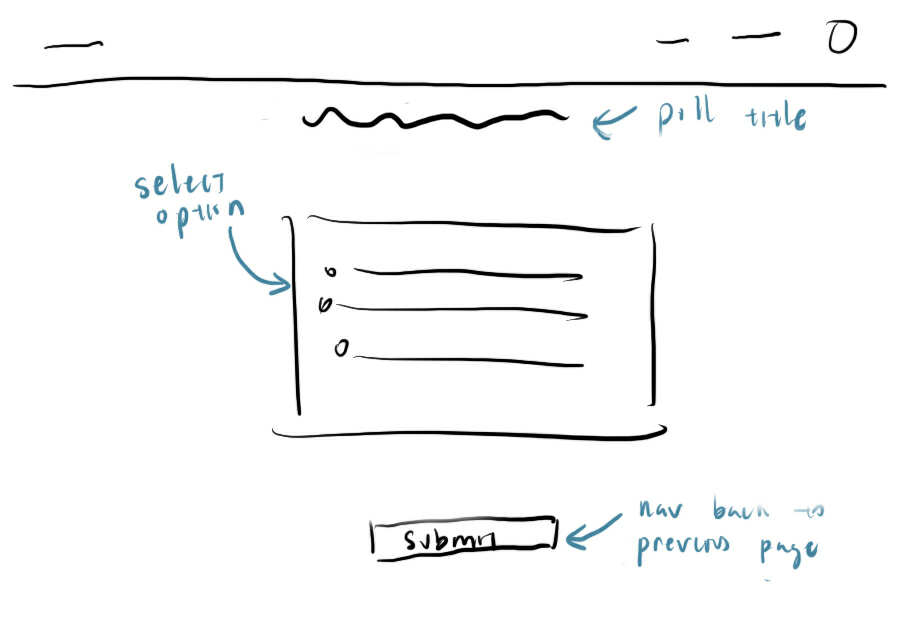 pill title
select
option
submit
nav back to
previous page